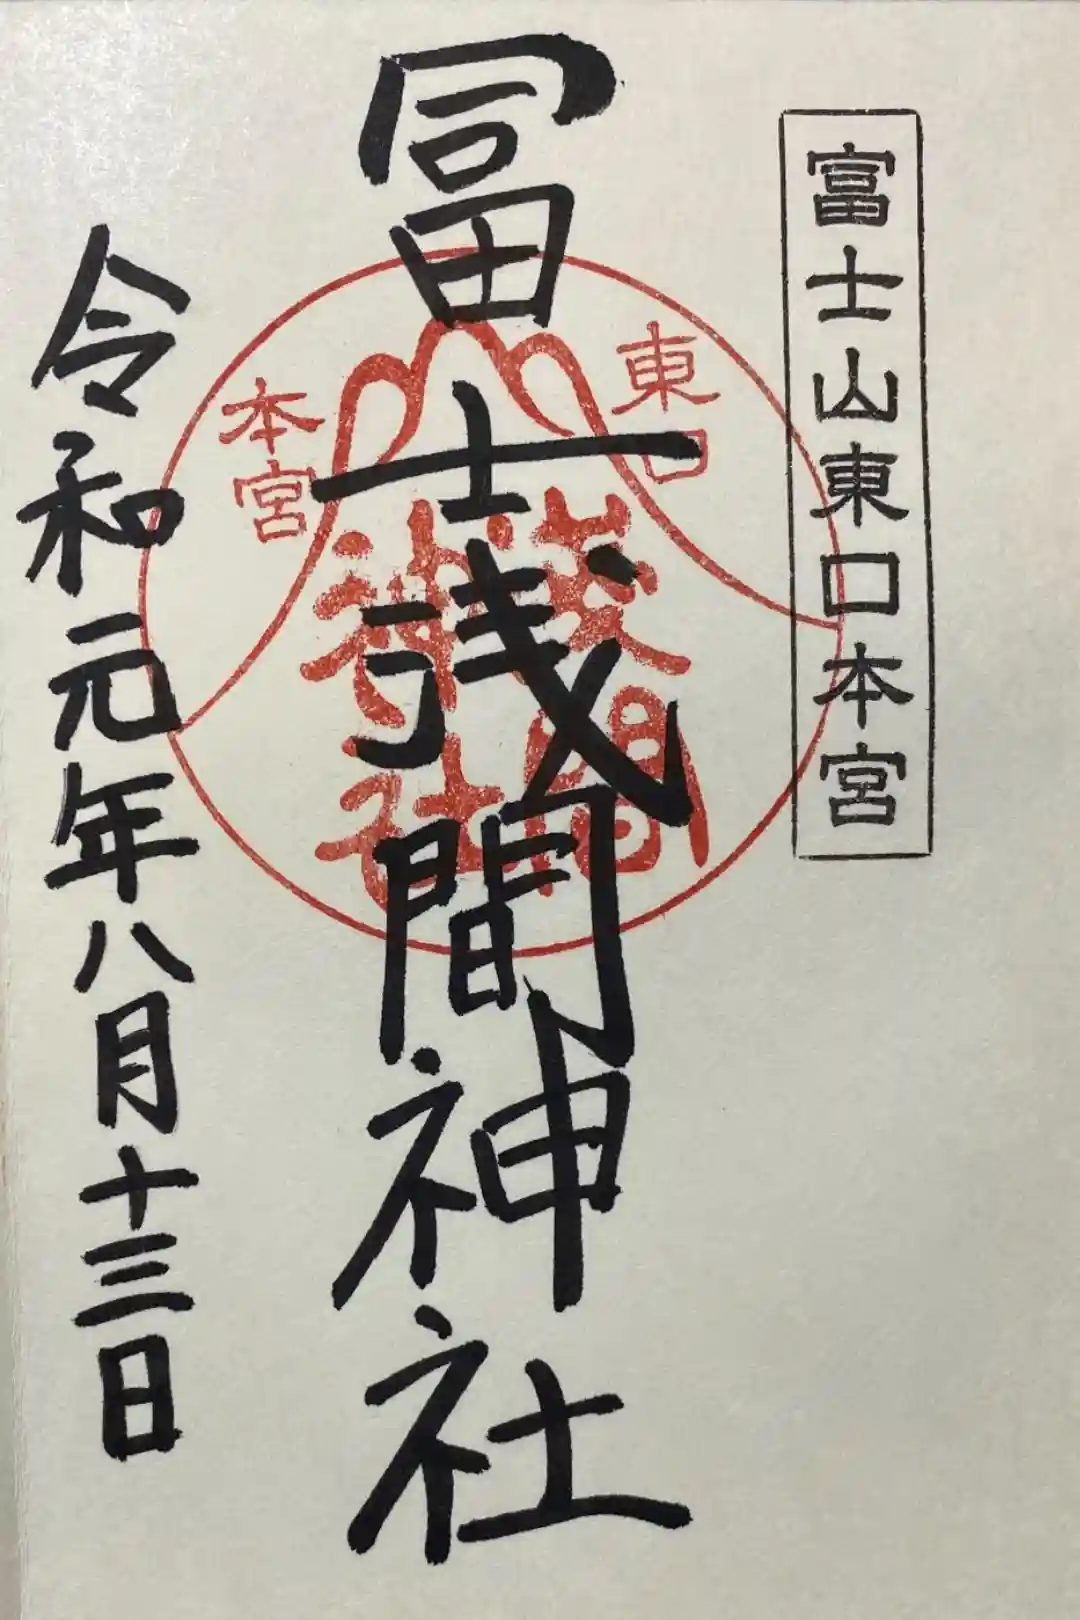 富士山東口本宮
東口
本宮
冨士浅間神社
令和元年八月十三日